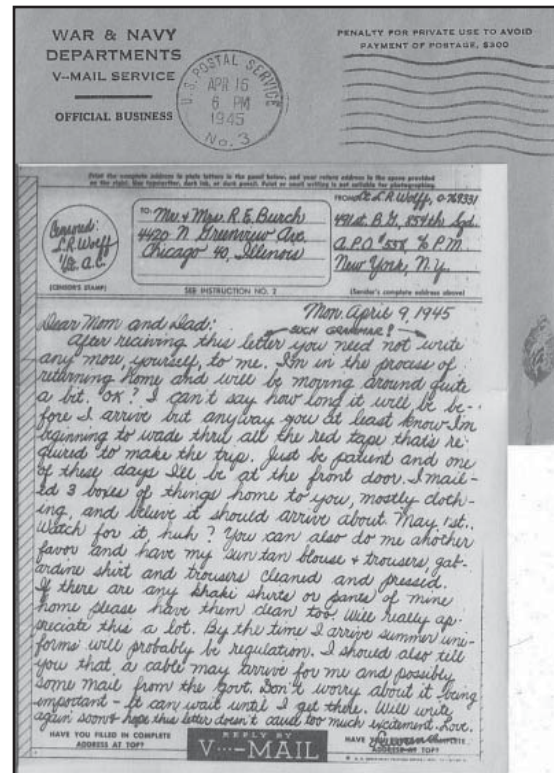 WAR & NAVY
DEPARTMENTS
V--MAIL SERVICE
OFFICIAL BUSINESS
U.S. POSTAL SERVICE
APR 16
6 PM
1945
No. 3
PENALTY FOR PRIVATE USE TO AVOID
PAYMENT OF POSTAGE, $300
Print the complete address in plain letters in the panel below, and your return address in the space provided
on the right. Use typewriter, dark ink, or dark pencil. Faint or small writing is not suitable for photographing.
Censored:
L R Wolff
1/Lt. A.C.
(CENSOR'S STAMP)
TO:
Mr. & Mrs. R. E. Burch
4420 N. Greenview Ave.
Chicago 40, Illinois
SEE INSTRUCTION NO. 2
FROM
Lt. L R Wolff, O-769331
491st B.G., 854th Sqd.
A.P.O # 558, % P.M.
New York, N.Y.
(Sender's complete address above)
Mon. April 9, 1945
Dear Mom and Dad:
SUCH GRAMMAR?
After reciving this letter you need not write
any more, yourself, to me. I'm in the process of
returning home and will be moving around quite
a bit. "OK"? I can't say how long it will be be-
fore I arrive but anyway you at least know I'm
beginning to wade thru all the red tape that's re-
quired to make the trip. Just be patient and one
of these days I'll be at the front door. I mail-
ed 3 boxes of things home to you, mostly cloth-
ing, and believe it should arrive about May 1st..
Watch for it huh? You can also do me another
favor and have my sun tan blouse & trousers, gab-
ardine shirt and trousers cleaned and pressed.
If there are any khaki shirts or pants of mine
home please have them clean too. Will really ap-
preciate this a lot. By the time I arrive summer uni-
forms will probably be regulation. I should also tell
you that a cable may arrive for me and possibly
some mail from the govt. Don't worry about it being
important - It can wait until I get there. Will write
again soon - hope this letter doesn't cause too much excitement. Love,
HAVE YOU FILLED IN COMPLETE
ADDRESS AT TOP?
REPLY BY
V···-MAIL
HAVE YOU COMPLETE
ADDRESS AT TOP?